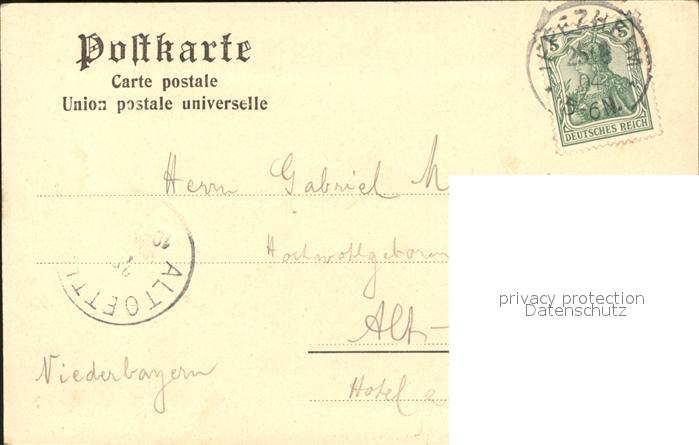 Postkarte
Carte postale
Union postale universelle
5 5
04
5-6N.
DEUTSCHES REICH
Herrn Gabriel M
Hochwohlgeboren
ALTOETTI
Alt-
privacy protection
Datenschutz
Niederbayern
Hotel